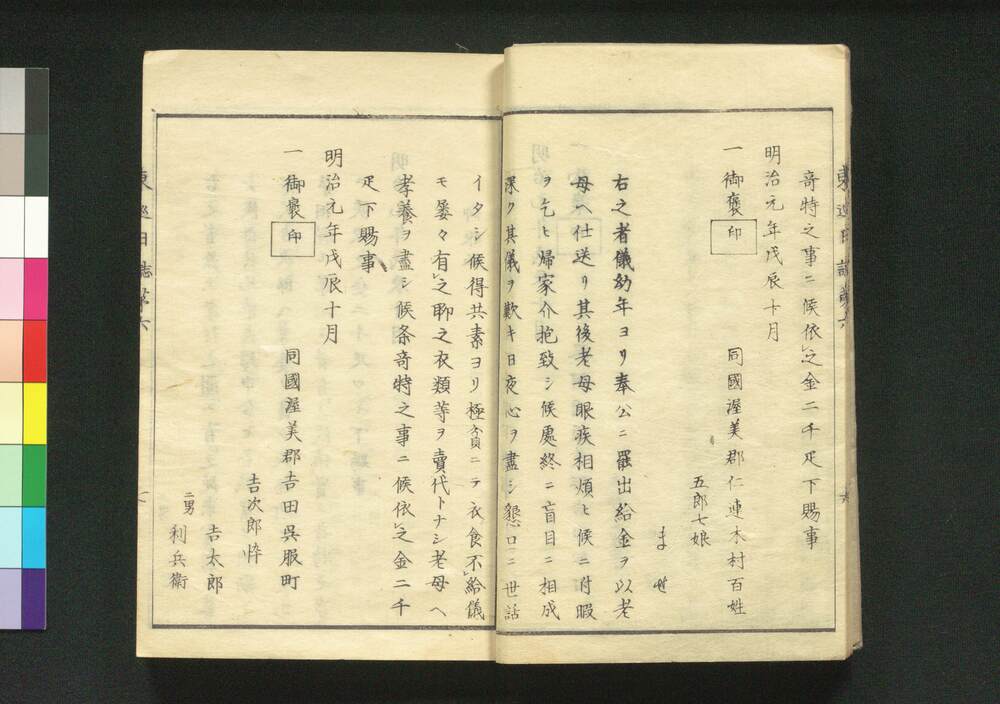 奇特之事ニ候依之金二千疋下賜事
明治元年戊辰十月
一 御褒 印
同國渥美郡仁連木村百姓
五郎七娘
ませ
右之者儀幼年ヨリ奉公ニ罷出給金ヲ以老
母ヘ仕送リ其後老母眼疾相煩ヒ候ニ付暇
ヲ乞ヒ歸家介抱致シ候處終ニ盲目ニ相成
深ク其儀ヲ歎キ日夜心ヲ盡シ懇ロニ世話
イタシ候得共素ヨリ極貧ニテ衣食不給儀
モ屡々有之聊之衣類等ヲ賣代トナシ老母ヘ
孝養ヲ盡シ候条奇特之事ニ候依之金二千
疋下賜事
明治元年戊辰十月
一 御褒 印
同國渥美郡吉田呉服町
吉次郎悴
吉太郎
二男
利兵衛
東巡日誌第六